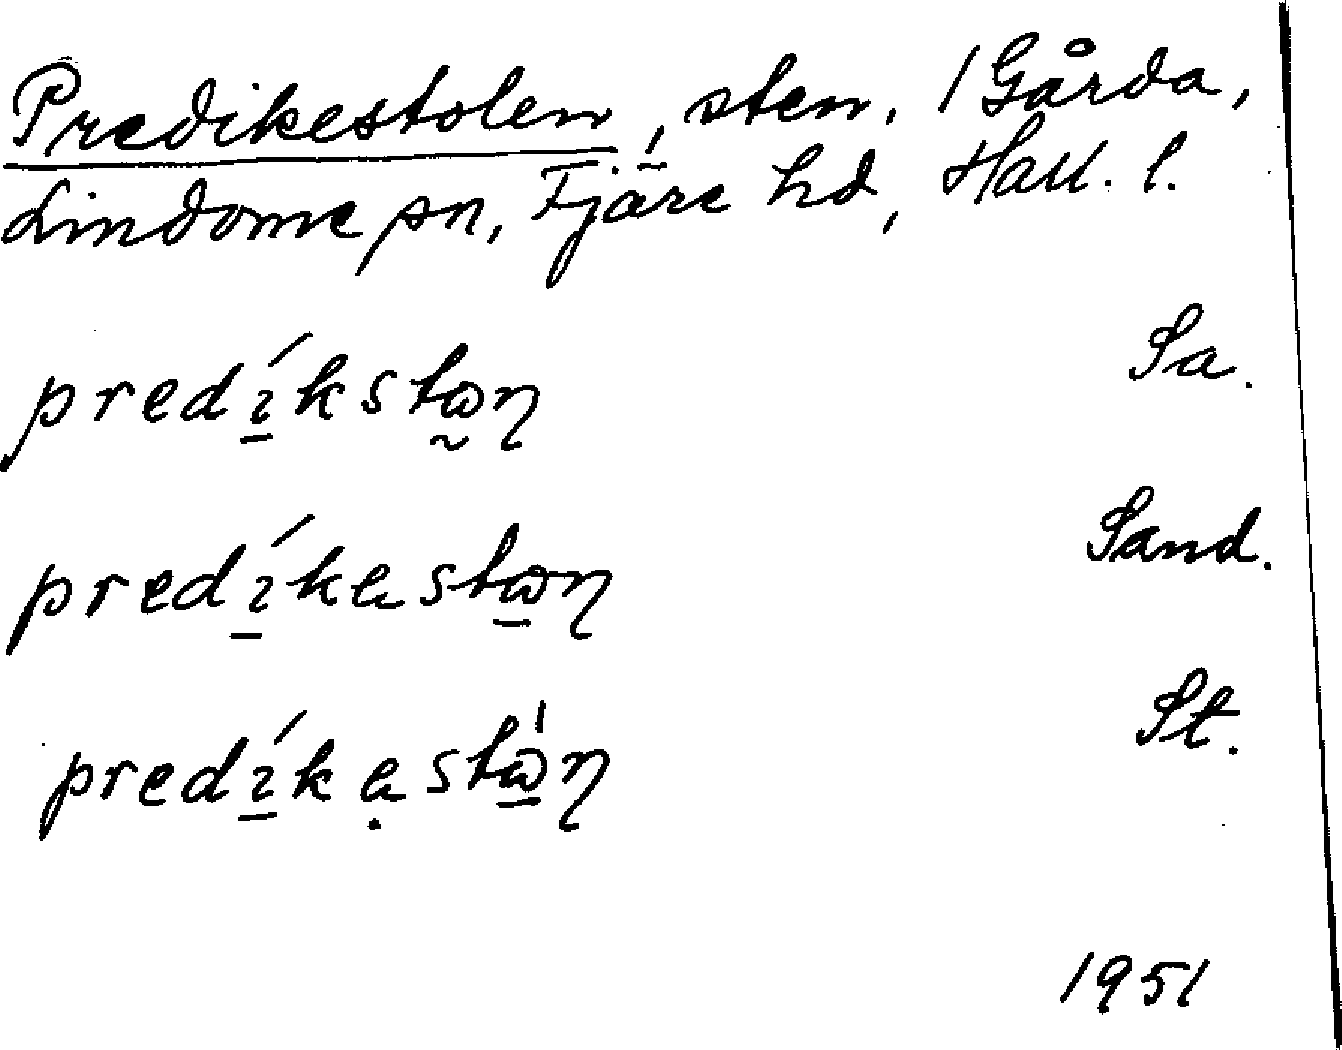 Predikestolen, sten, 1 Gårda,
Lindome sn, Fjäre hd, Hall. l.
predı̱́kstω̰η Sa.
predı̱́kestω̱η Sand.
predı̱́kẹstω̱̍η St.
1951